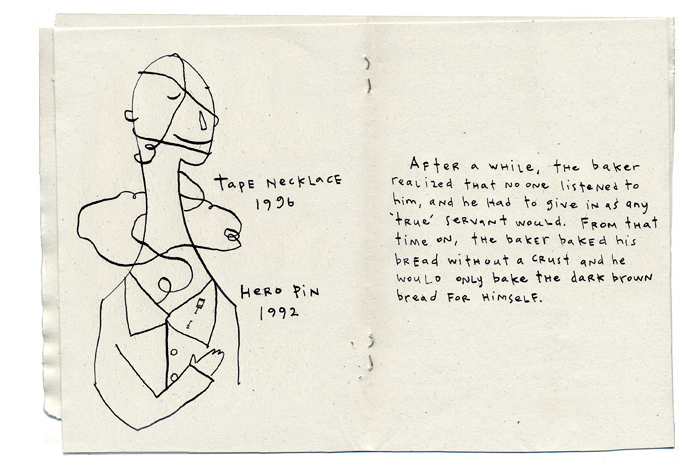 TAPE NECKLACE
1996
HERO PIN
1992
AFTER a while, THE baker
realized that no one listened to
him, and he had to give in as any
'true' servant would. From that
time on, the baker baked his
bread without a crust and he
would only bake the dark brown
bread for himself.